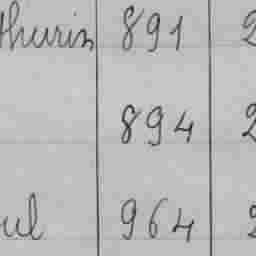 thurin 891 2
894 2
ul 964 2